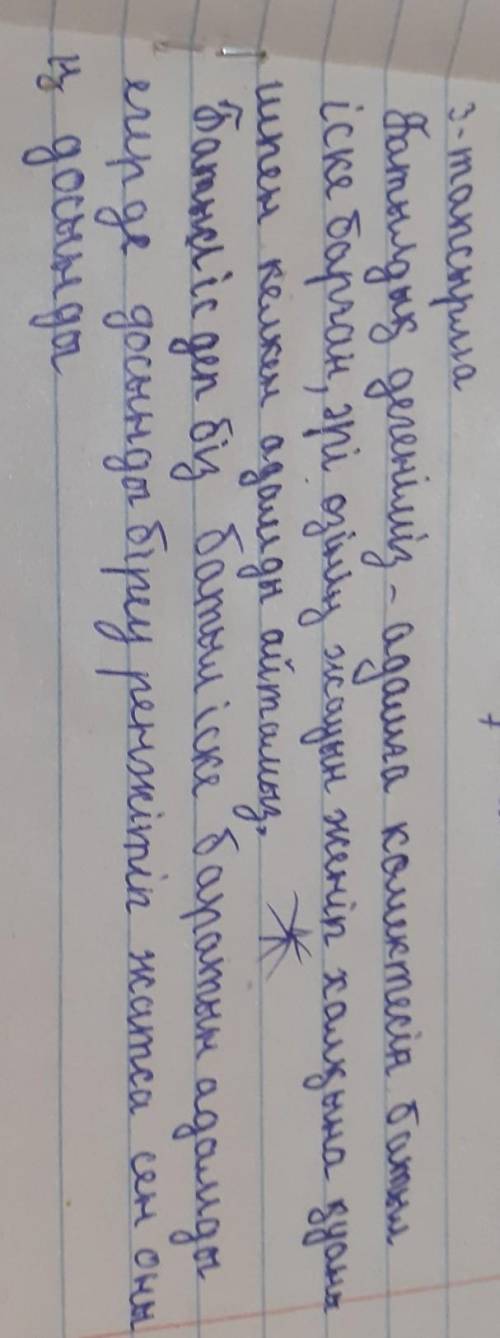 3-тапсырма
Батылдық дегеніміз - адамға көмектесіп батыл
іске барған, әрі өзінің жауын жеңіп халқына қуаны
шпен келген адамды айтамыз.
Батыл іс деп біз батыл іске баратын адамды
егерде досыңды біреу ренжітіп жатса сен оны
ң досыңды